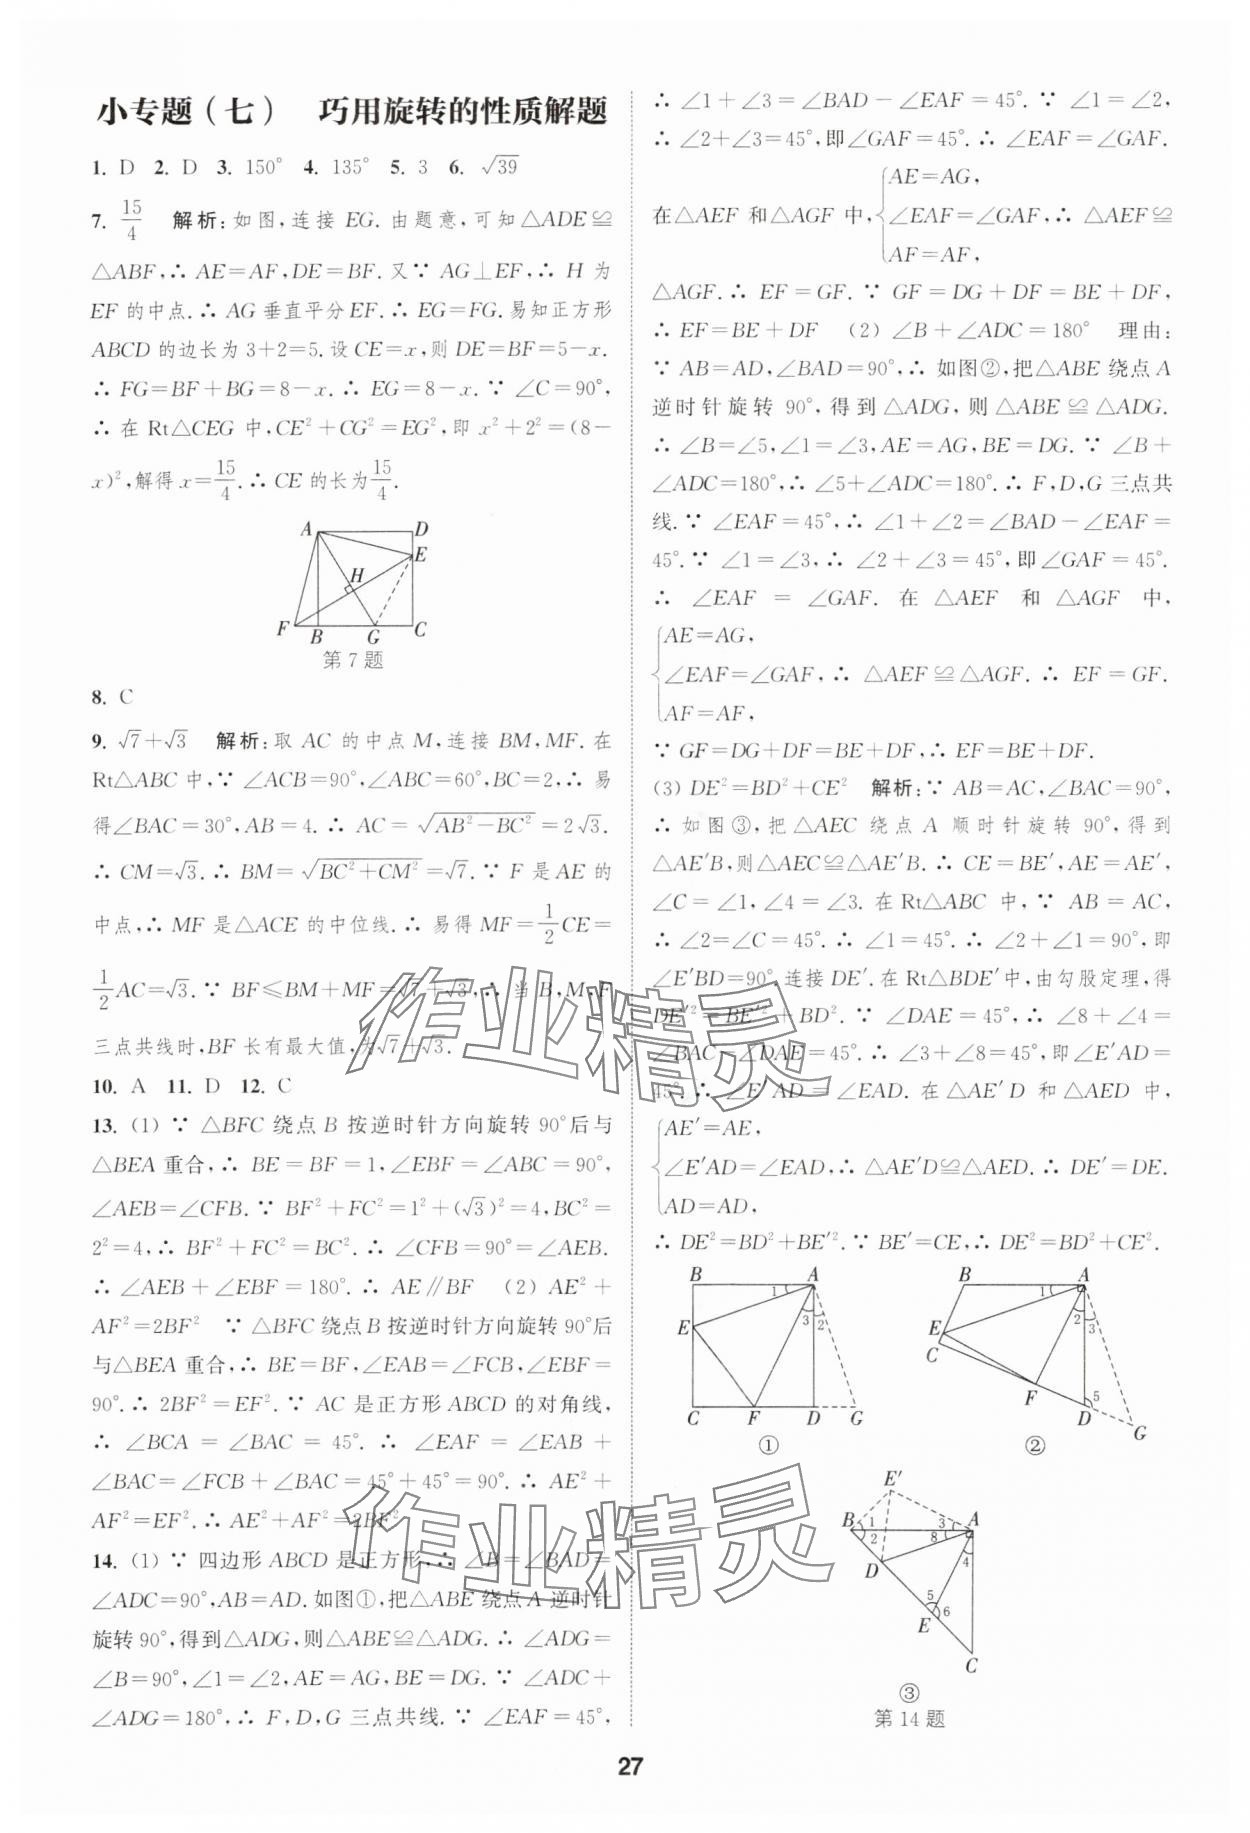 小专题(七) 巧用旋转的性质解题
1. D 2. D 3. 150° 4. 135° 5. 3 6. √39
7. 15/4 解析:如图,连接 EG. 由题意,可知△ADE≌
△ABF,∴ AE=AF,DE=BF. 又∵ AG⊥EF,∴ H 为
EF 的中点. ∴ AG 垂直平分 EF. ∴ EG=FG. 易知正方形
ABCD 的边长为 3+2=5. 设 CE=x,则 DE=BF=5-x.
∴ FG=BF+BG=8-x. ∴ EG=8-x. ∵ ∠C=90°,
∴ 在 Rt△CEG 中,CE²+CG²=EG²,即 x²+2²=(8-
x)²,解得 x=15/4. ∴ CE 的长为15/4.
A D
E
H
F B G C
第 7 题
8. C
9. √7+√3 解析:取 AC 的中点 M,连接 BM,MF. 在
Rt△ABC 中,∵ ∠ACB=90°,∠ABC=60°,BC=2,∴ 易
得∠BAC=30°,AB=4. ∴ AC=√(AB²-BC²)=2√3.
∴ CM=√3. ∴ BM=√(BC²+CM²)=√7. ∵ F 是 AE 的
中点,∴ MF 是△ACE 的中位线. ∴ 易得 MF=1/2CE=
1/2AC=√3. ∵ BF≤BM+MF=√7+√3,∴ 当 B,M,F
三点共线时,BF 长有最大值,为√7+√3.
10. A 11. D 12. C
13. (1) ∵ △BFC 绕点 B 按逆时针方向旋转 90°后与
△BEA 重合,∴ BE=BF=1,∠EBF=∠ABC=90°,
∠AEB=∠CFB. ∵ BF²+FC²=1²+(√3)²=4,BC²=
2²=4,∴ BF²+FC²=BC². ∴ ∠CFB=90°=∠AEB.
∴ ∠AEB+∠EBF=180°. ∴ AE∥BF (2) AE²+
AF²=2BF² ∵ △BFC 绕点 B 按逆时针方向旋转 90°后
与△BEA 重合,∴ BE=BF,∠EAB=∠FCB,∠EBF=
90°. ∴ 2BF²=EF². ∵ AC 是正方形 ABCD 的对角线,
∴ ∠BCA=∠BAC=45°. ∴ ∠EAF=∠EAB+
∠BAC=∠FCB+∠BAC=45°+45°=90°. ∴ AE²+
AF²=EF². ∴ AE²+AF²=2BF²
14. (1) ∵ 四边形 ABCD 是正方形,∴ ∠B=∠BAD=
∠ADC=90°,AB=AD. 如图①,把△ABE 绕点 A 逆时针
旋转 90°,得到△ADG,则△ABE≌△ADG. ∴ ∠ADG=
∠B=90°,∠1=∠2,AE=AG,BE=DG. ∵ ∠ADC+
∠ADG=180°,∴ F,D,G 三点共线. ∵ ∠EAF=45°,
∴ ∠1+∠3=∠BAD-∠EAF=45°. ∵ ∠1=∠2,
∴ ∠2+∠3=45°,即∠GAF=45°. ∴ ∠EAF=∠GAF.
在△AEF 和△AGF 中,{AE=AG, ∠EAF=∠GAF, AF=AF, ∴ △AEF≌
△AGF. ∴ EF=GF. ∵ GF=DG+DF=BE+DF,
∴ EF=BE+DF (2) ∠B+∠ADC=180° 理由:
∵ AB=AD,∠BAD=90°,∴ 如图②,把△ABE 绕点 A
逆时针旋转 90°,得到△ADG,则△ABE≌△ADG.
∴ ∠B=∠5,∠1=∠3,AE=AG,BE=DG. ∵ ∠B+
∠ADC=180°,∴ ∠5+∠ADC=180°. ∴ F,D,G 三点共
线. ∵ ∠EAF=45°,∴ ∠1+∠2=∠BAD-∠EAF=
45°. ∵ ∠1=∠3,∴ ∠2+∠3=45°,即∠GAF=45°.
∴ ∠EAF=∠GAF. 在△AEF 和△AGF 中,
{AE=AG,
∠EAF=∠GAF, ∴ △AEF≌△AGF. ∴ EF=GF.
AF=AF,
∵ GF=DG+DF=BE+DF,∴ EF=BE+DF.
(3) DE²=BD²+CE² 解析:∵ AB=AC,∠BAC=90°,
∴ 如图③,把△AEC 绕点 A 顺时针旋转 90°,得到
△AE′B,则△AEC≌△AE′B. ∴ CE=BE′,AE=AE′,
∠C=∠1,∠4=∠3. 在 Rt△ABC 中,∵ AB=AC,
∴ ∠2=∠C=45°. ∴ ∠1=45°. ∴ ∠2+∠1=90°,即
∠E′BD=90°. 连接 DE′. 在 Rt△BDE′中,由勾股定理,得
DE′²=BE′²+BD². ∵ ∠DAE=45°,∴ ∠8+∠4=
∠BAC-∠DAE=45°. ∴ ∠3+∠8=45°,即∠E′AD=
45°. ∴ ∠E′AD=∠EAD. 在△AE′D 和△AED 中,
{AE′=AE,
∠E′AD=∠EAD, ∴ △AE′D≌△AED. ∴ DE′=DE.
AD=AD,
∴ DE²=BD²+BE′². ∵ BE′=CE,∴ DE²=BD²+CE².
B A
1 3 2
E
C F D G
①
B A
1 2 3
E
C
F 5
D G
②
E′
B 1 2 3 8 A
4
D
5 6
E
C
③
第 14 题
27
作业精灵
作业精灵